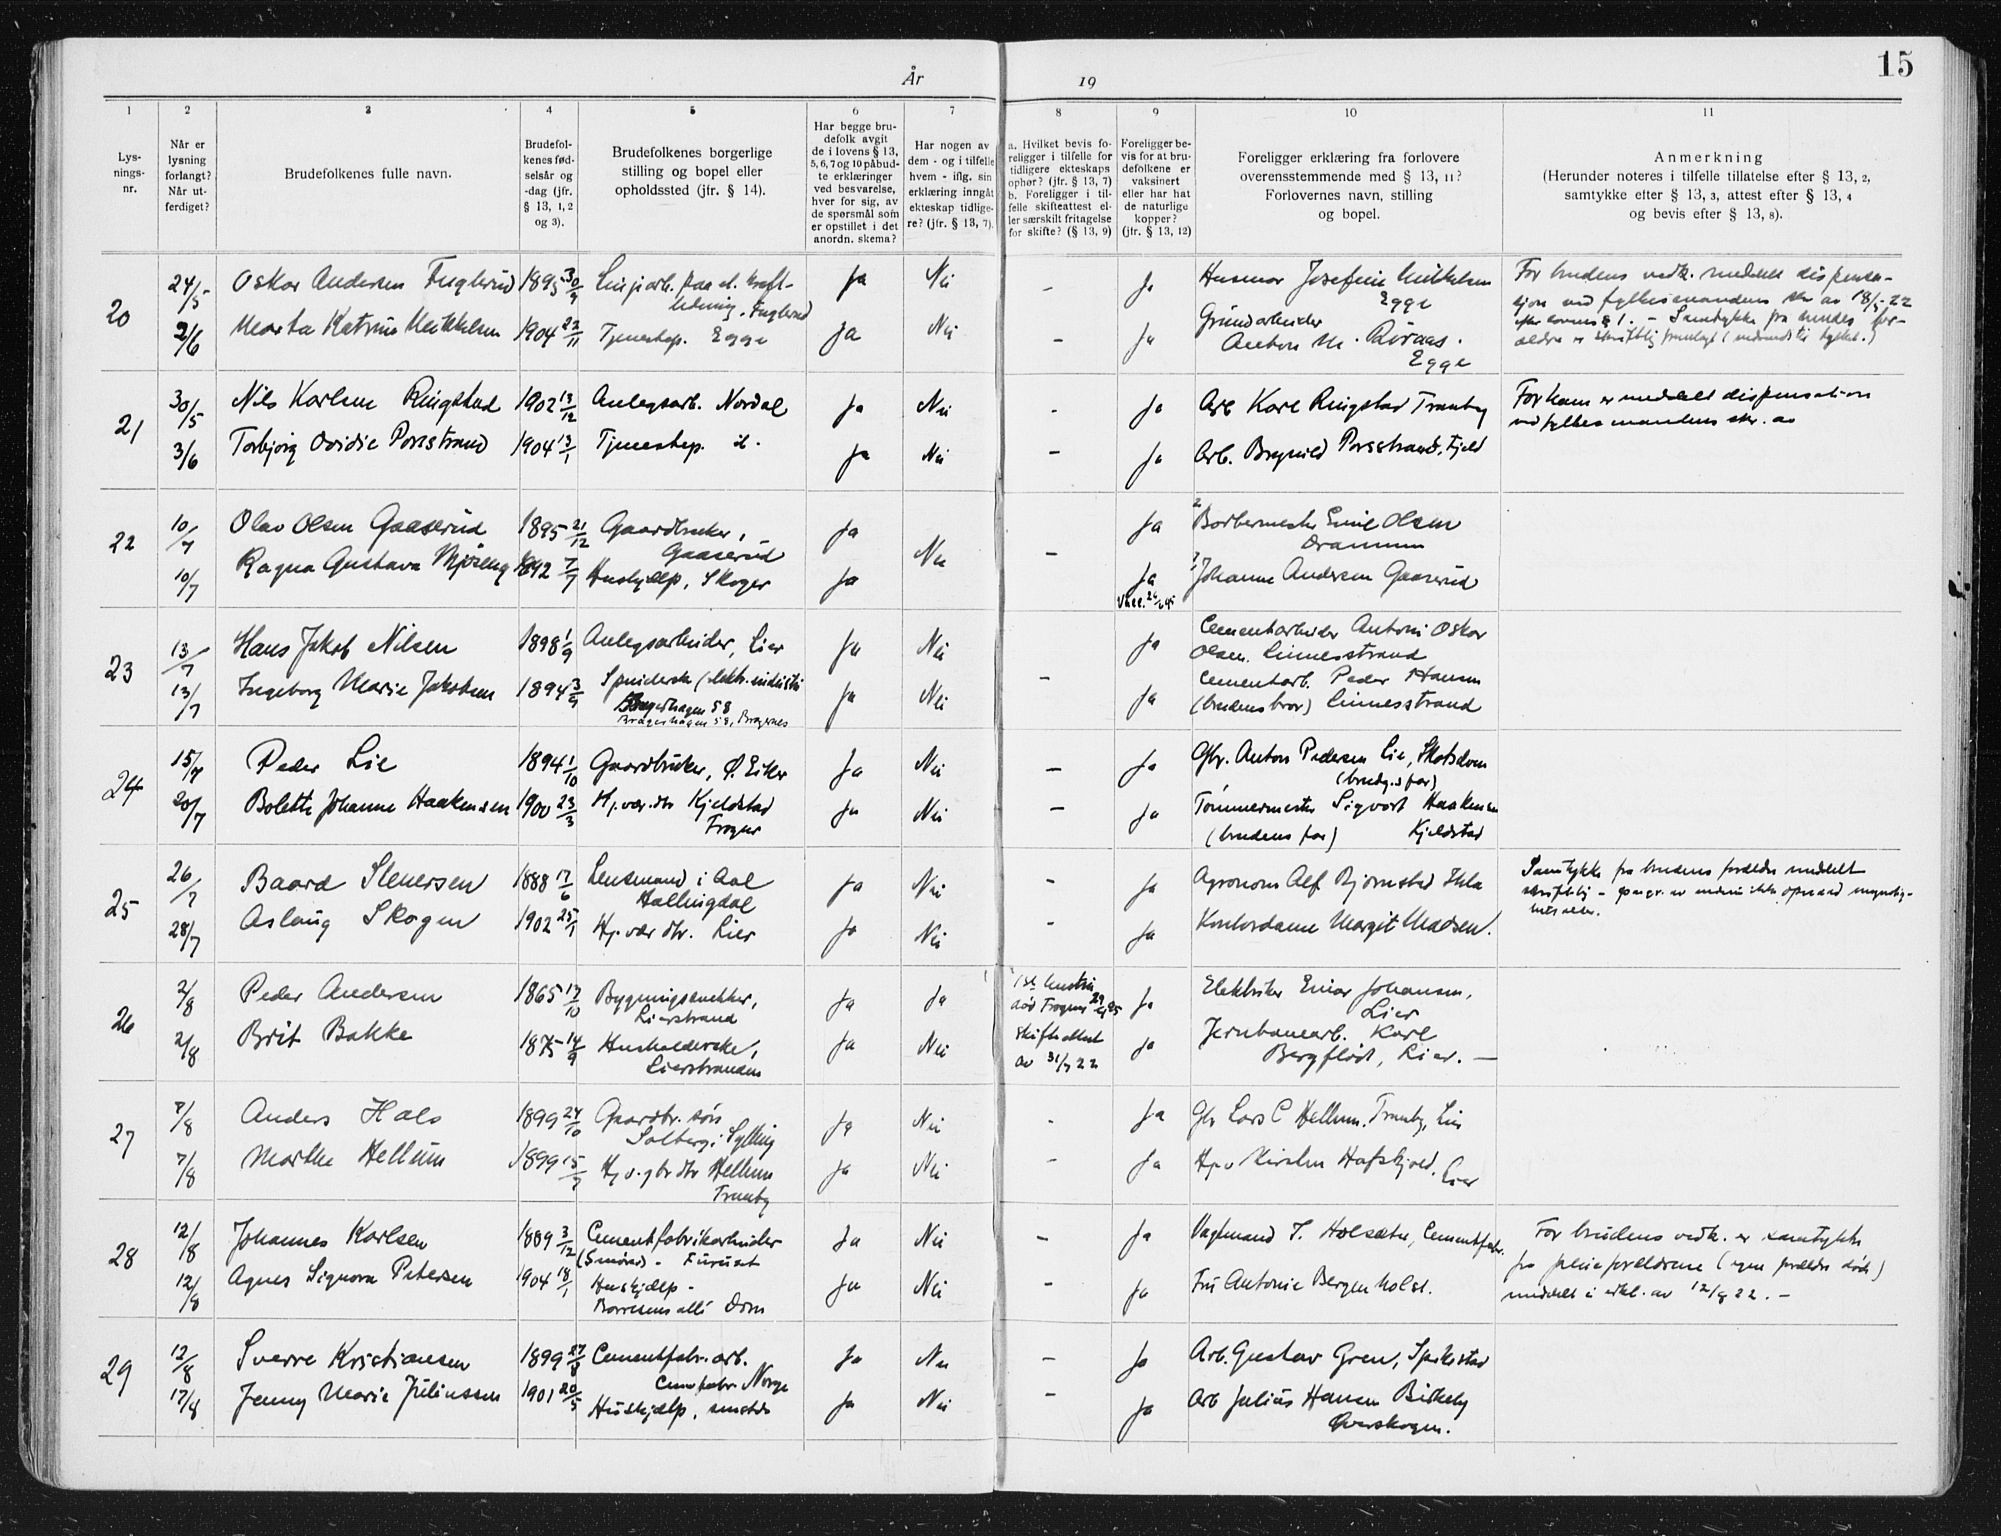 15
År 19
1 2 3 4 5 6 7 8 9 10 11
Lys-
nings-
nr.
Når er
lysning
forlangt?
Når ut-
ferdiget?
Brudefolkenes fulle navn.
Brudefol-
kenes fød-
selsår og
-dag (jfr.
§ 13, 1, 2
og 3).
Brudefolkenes borgerlige
stilling og bopel eller
opholdssted (jfr. § 14).
Har begge bru-
defolk avgit
de i lovens § 13,
5, 6, 7 og 10 påbud-
te erklæringer
ved besvarelse,
hver for sig, av
de spørsmål som
er opstillet i det
anordn. skema?
Har nogen av
dem - og i tilfelle
hvem - iflg. sin
erklæring inngåt
ekteskap tidlige-
re? (jfr. § 13, 7).
a. Hvilket bevis fo-
religger i tilfelle for
tidligere ekteskaps
ophør? (jfr. § 13, 7)
b. Foreligger i til-
felle skifteattest el-
ler særskilt fritagelse
for skifte? (§ 13, 9)
Foreligger be-
vis for at bru-
defolkene er
vaksinert
eller har hat
de naturlige
kopper?
(jfr. § 13, 12)
Foreligger erklæring fra forlovere
overensstemmende med § 13, 11?
Forlovernes navn, stilling
og bopel.
Anmerkning
(Herunder noteres i tilfelle tillatelse efter § 13, 2,
samtykke efter § 13, 3, attest efter § 13, 4
og bevis efter § 13, 8).
20
24/5 Oskar Andersen Fuglerud 1895 30/9 Linjearb. paa el. kraft- Ja Nei - Ja Husmor Josefine Mikkelsen
ledning. Fuglerud Egge
2/6 Marta Katrine Mikkelsen 1904 22/11 Tjenestep. Egge Ja Nei - Ja Grundarbeider
Anton M.
Egge
For brudens vedk. meddelt dispensa-
sjon ved fylkesmandens skr av 18/5 22
efter lovens § 1. - Samtykke fra hendes for-
ældre er skriftlig
21
30/5 Nils Karlsen Ringstad 1902 13/12 Anlegsarb. Nordal Ja Nei - Ja Arb Karl Ringstad Tranby
3/6 Torbjørg Ovidie Porsstrand 1904 13/1 Tjenestep. Ja Nei - Ja Arb. Brynild Porsstrand, Fjeld
For ham er meddelt dispensation
ved fylkesmandens skr. av
22
10/7 Olav Olsen Gaaserud 1895 21/12 Gaardbruker, Ja Nei - Ja Barbermester Emil Olsen
Gaaserud Drammen
10/7 Ragna Gustava Mjøseng 1892 7/7 Hushjælp, Skoger Ja Ja Johanne Andersen Gaaserud
23
13/7 Hans Jakob Nilsen 1898 1/9 Anlegsarbeider, Lier Ja Nei - Ja Cementarbeider Antoni Oskar
Olsen. Linnesstrand
13/7 Ingeborg Marie Jakobsen 1894 Spinderske (elektr. industri Ja Nei Ja Cementarb. Peder Hansen
Bragerhagen 58
Bragerhagen 58, Bragernes
(brudens bror) Linnesstrand
24
15/7 Peder Lie 1894 1/10 Gaardbruker, Ø. Eiker Ja Nei - Ja Gbr. Anton Pedersen Lie, Skotselven
(brudg.s far)
20/7 Bolette Johanne Haakensen 1900 23/3 Hj. vær. dtr Kjeldstad Ja Nei - Ja Tømmermester Sigvart Haakensen
Frogner (brudens far) Kjeldstad
25
26/7 Baard Stenersen 1888 17/6 Lensmand i Aal Ja Nei - Ja Agronom Alf Bjørnstad
Hallingdal
28/7 Aslaug Skogen 1902 25/1 Hj. vær dtr. Lier Ja Nei - Ja Kontordame Margit Madsen.
Samtykke fra brudens forældre meddelt
skriftlig - ikke opnaad myndig-
hetsalder.
26
2/8 Peder Andersen 1865 17/10 Bygningssnekker, Ja Ja 1ste hustru Ja Elektriker Einar Johansen,
Lierstrand død Frogner Lier
2/8 Brit Bakke 1875 14/9 Husholderske, Ja Nei skifteattest Ja Jernbanearb. Karl
Lierstranden av 31/7 22 Bergflødt, Lier. —
27
7/8 Anders Hals 1899 24/10 Gaardbr. søn Ja Nei - Ja Gbr Lars C Hellum. Tranby, Lier
Solberg i Sylling
7/8 Marthe Hellum 1899 15/7 Hj v. gbr dtr Hellum Ja Nei - Ja Hj. v Kirsten Hafskjold. Lier
Tranby
28
12/8 Johannes Karlsen 1889 3/12 Cementfabrikarbeider Ja Nei - Ja Vagtmand T. Holsæter, Cementfabr.
- Furuset
12/8 Agnes Signora Petersen 1904 18/1 Hushjælp - Ja Nei Ja Fru Antonie Bergen Holst.
Borresens allé Drm
For brudens vedk. er samtykke
fra pleieforældrene (egne forældre døde)
meddelt i erkl. av 12/8 22. -
29
12/8 Sverre Kristiansen 1899 27/8 Cementfabr. arb. Ja Nei - Ja Arb. Gustav Gren, Spikestad
Cemfabr. Norge
17/8 Jenny Marie Juliussen 1901 20/5 Hushjælp, smstds Ja Nei - Ja Arb Julius Hansen Birkeby
Overskogen.